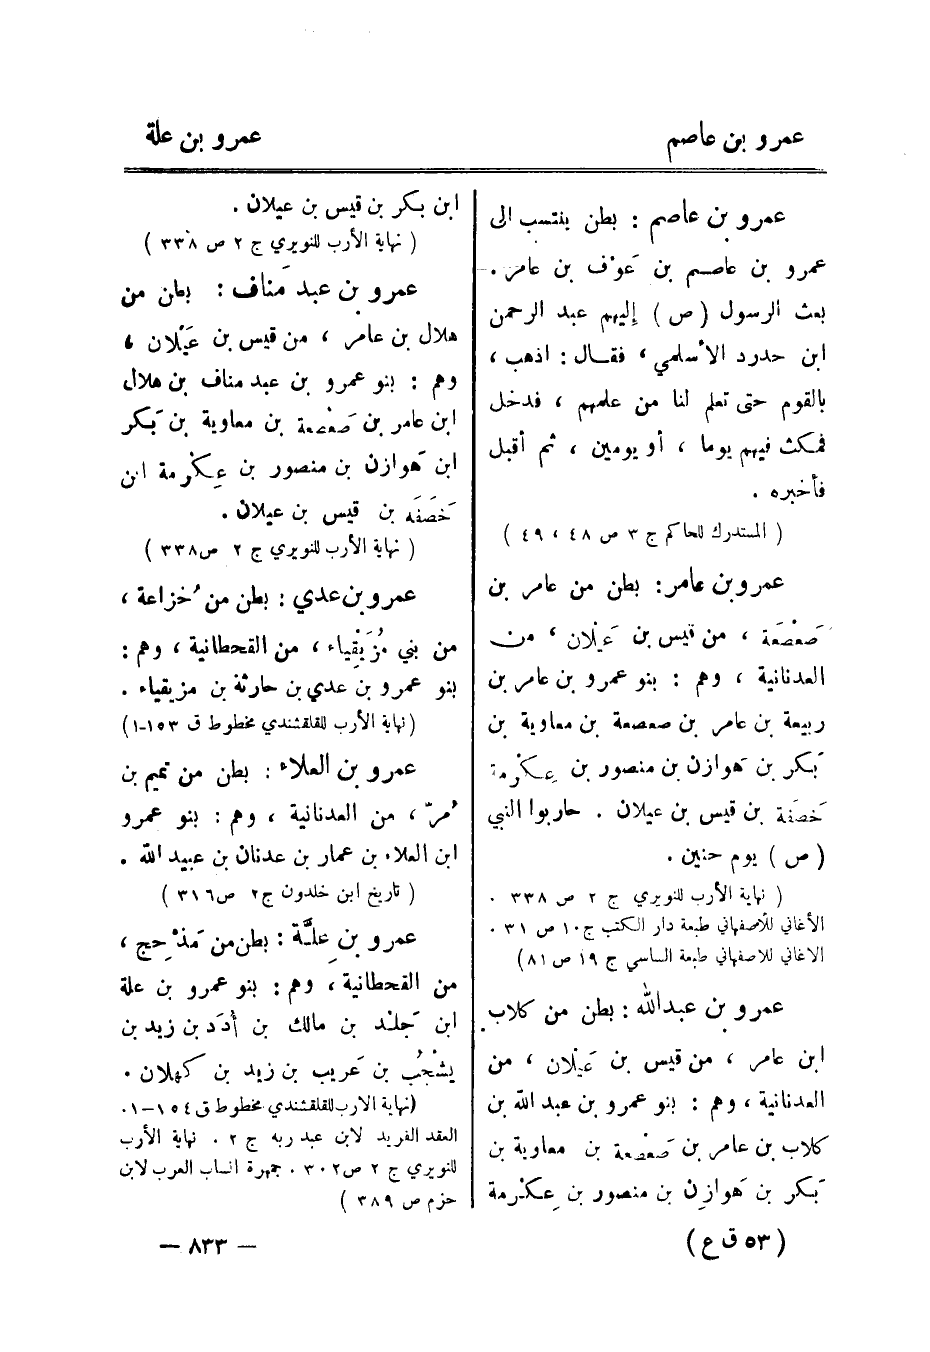 عمرو بن عاصم
عمرو بن علة
عمرو بن عاصم : بطن ينتسب الى
عمرو بن عاصم بن عَوْف بن عامر .
بعث الرسول (ص) إليهم عبد الرحمن
ابن حدرد الأسلمي ، فقال : اذهب ،
بالقوم حتى تعلم لنا من علمهم ، فدخل
فمكث فيهم يوما ، أو يومين ، ثم أقبل
فأخبره .
( المستدرك للحاكم ج ٣ ص ٤٨ ، ٤٩ )
عمرو بن عامر : بطن من عامر بن
صَعْصَعَة ، من قيس بن عَيْلان ، من
العدنانية ، وهم : بنو عمرو بن عامر بن
ربيعة بن عامر بن صعصعة بن معاوية بن
بَكر بن هَوازن بن منصور بن عِكْرمة
خَصَفَة بن قيس بن عيلان . حاربوا النبي
(ص) يوم حنين .
( نهاية الأرب للنويري ج ٢ ص ٣٣٨ .
الأغاني للأصفهاني طبعة دار الكتب ج ١٠ ص ٣١ .
الاغاني للاصفهاني طبعة الساسي ج ١٩ ص ٨١)
عمرو بن عبدالله : بطن من كلاب
ابن عامر ، من قيس بن عَيْلان ، من
العدنانية ، وهم : بنو عمرو بن عبد الله بن
كلاب بن عامر بن صَعْصعة بن معاوية بن
بَكر بن هَوازِن بن منصور بن عِكْرمة
ابن بكر بن قيس بن عيلان .
( نهاية الأرب للنويري ج ٢ ص ٣٣٨ )
عمرو بن عبد مَناف : بطن من
هلال بن عامر ، من قيس بن عَيْلان ،
وهم : بنو عمرو بن عبد مناف بن هلال
ابن عامر بن صَعْصعة بن معاوية بن بَكر
ابن هَوازن بن منصور بن عِكْرمة ابن
خَصَفَه بن قيس بن عيلان .
( نهاية الأرب للنويري ج ٢ ص٣٣٨ )
عمرو بن عدي : بطن من خُزاعة ،
من بني مُزَيْقِياء ، من القحطانية ، وهم :
بنو عمرو بن عدي بن حارثة بن مزيقياء .
(نهاية الأرب للقلقشندي مخطوط ق ١٥٣-١)
عمرو بن العلاء : بطن من تميم بن
مُرّ ، من العدنانية ، وهم : بنو عمرو
ابن العلاء بن عمار بن عدنان بن عبيد الله .
( تاريخ ابن خلدون ج٢ ص٣١٦ )
عمرو بن عِلَّة : بطن من مَذْحِج ،
من القحطانية ، وهم : بنو عمرو بن علة
ابن جَلْد بن مالك بن أُدَد بن زيد بن
يشْجُب بن عَريب بن زيد بن كهلان .
(نهاية الارب للقلقشندي مخطوط ق ١٥٤-١ .
العقد الفريد لابن عبد ربه ج ٢ . نهاية الأرب
للنويري ج ٢ ص٣٠٢ . جمهرة انساب العرب لابن
حزم ص ٣٨٩ )
( ٥٣ ق ع )
— ٨٣٣ —